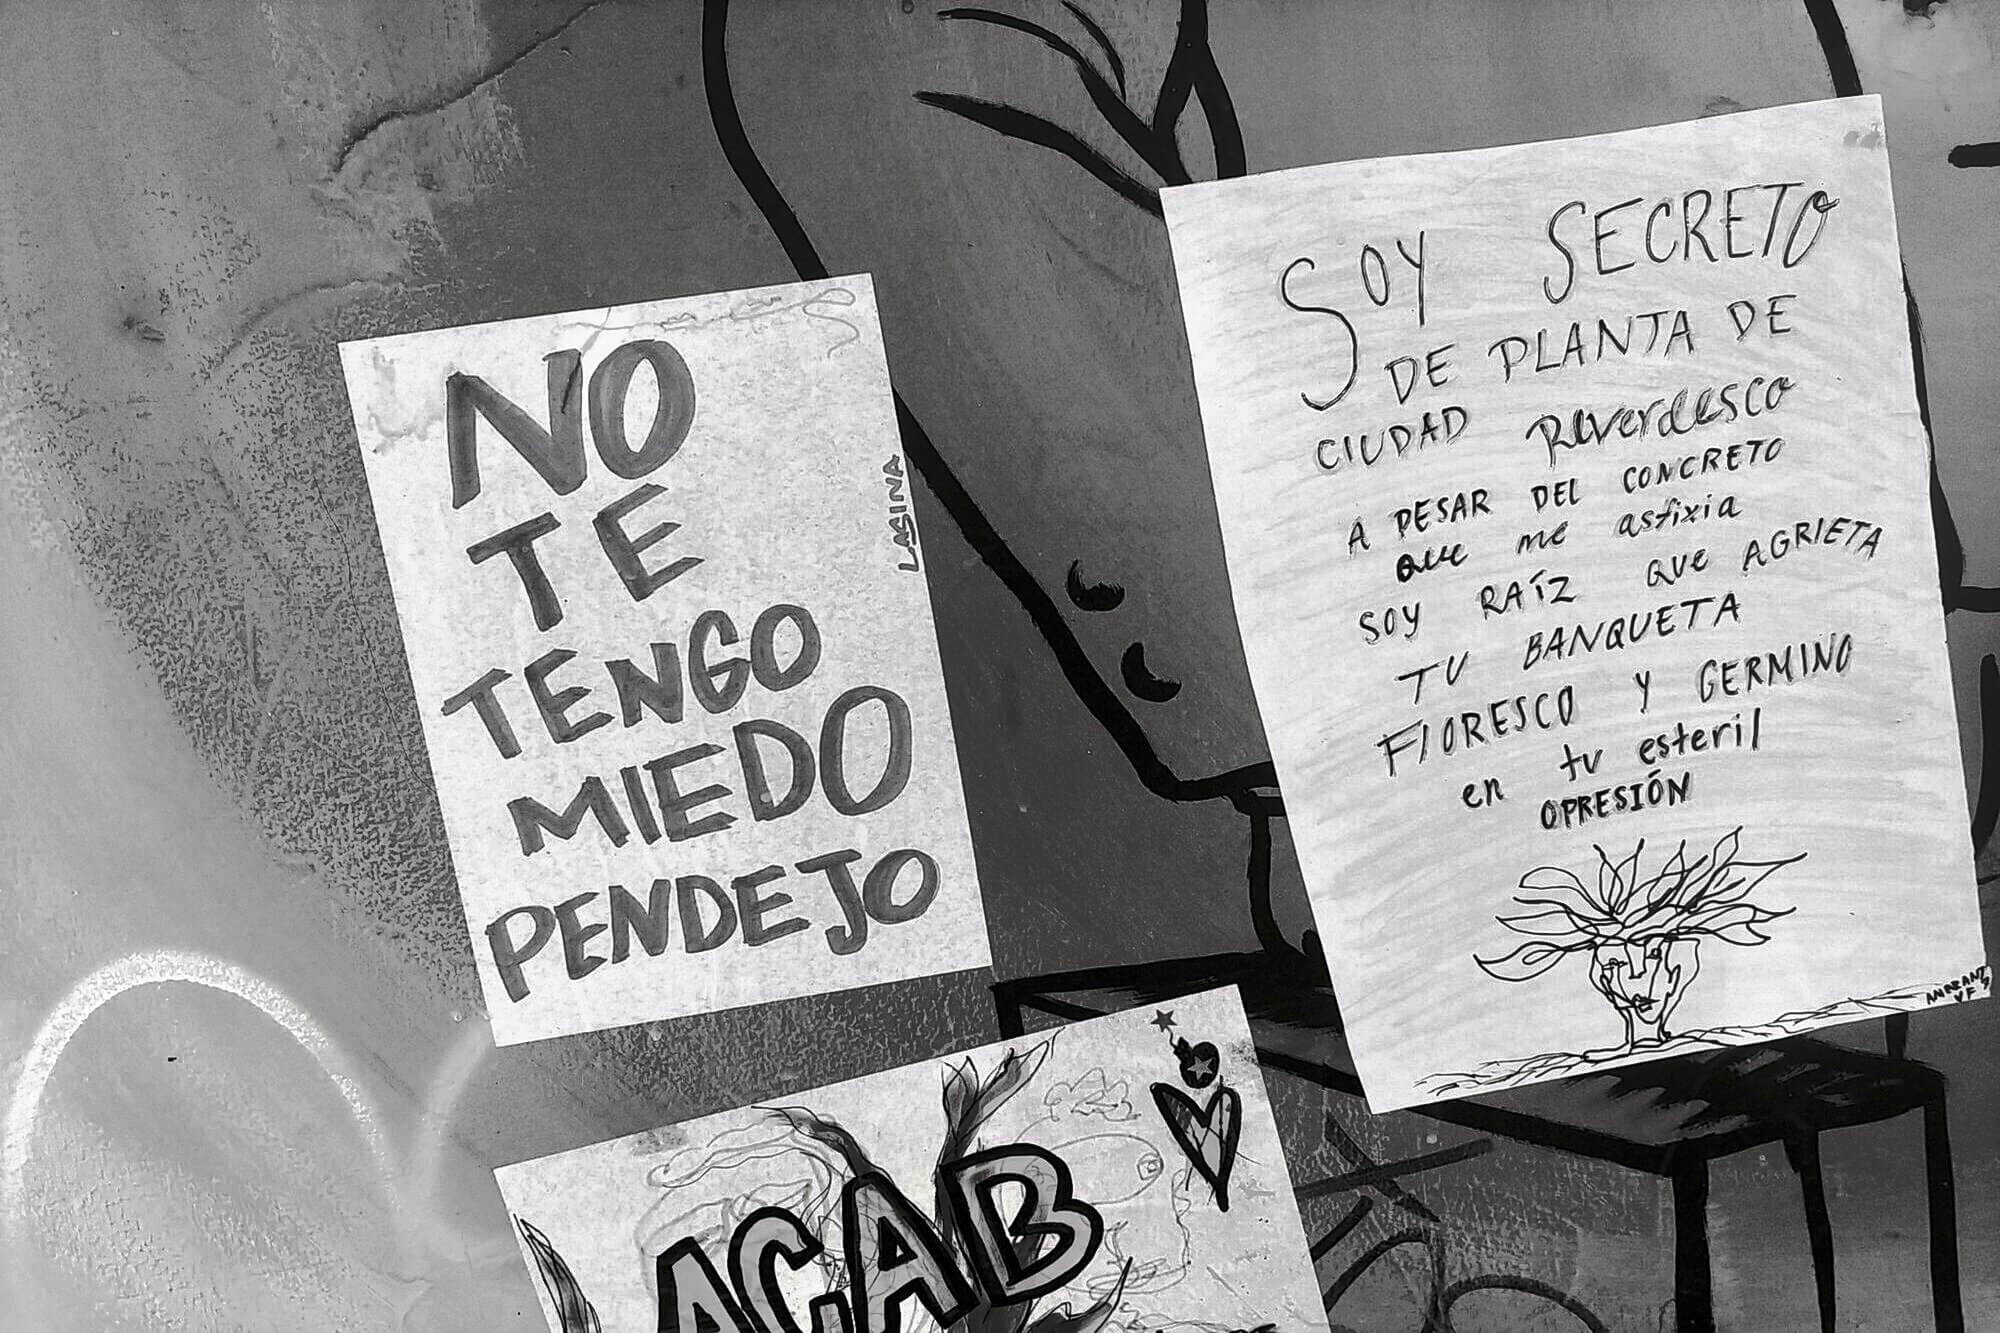 NO
TE
TENGO
MIEDO
PENDEJO
LASINA
SOY SECRETO
DE PLANTA DE
CIUDAD Reverdesco
A PESAR DEL CONCRETO
QUE me asfixia
SOY RAÍZ QUE AGRIETA
TU BANQUETA
FlORESCO Y GERMINO
en tu esteril
OPRESIÓN
ACAB